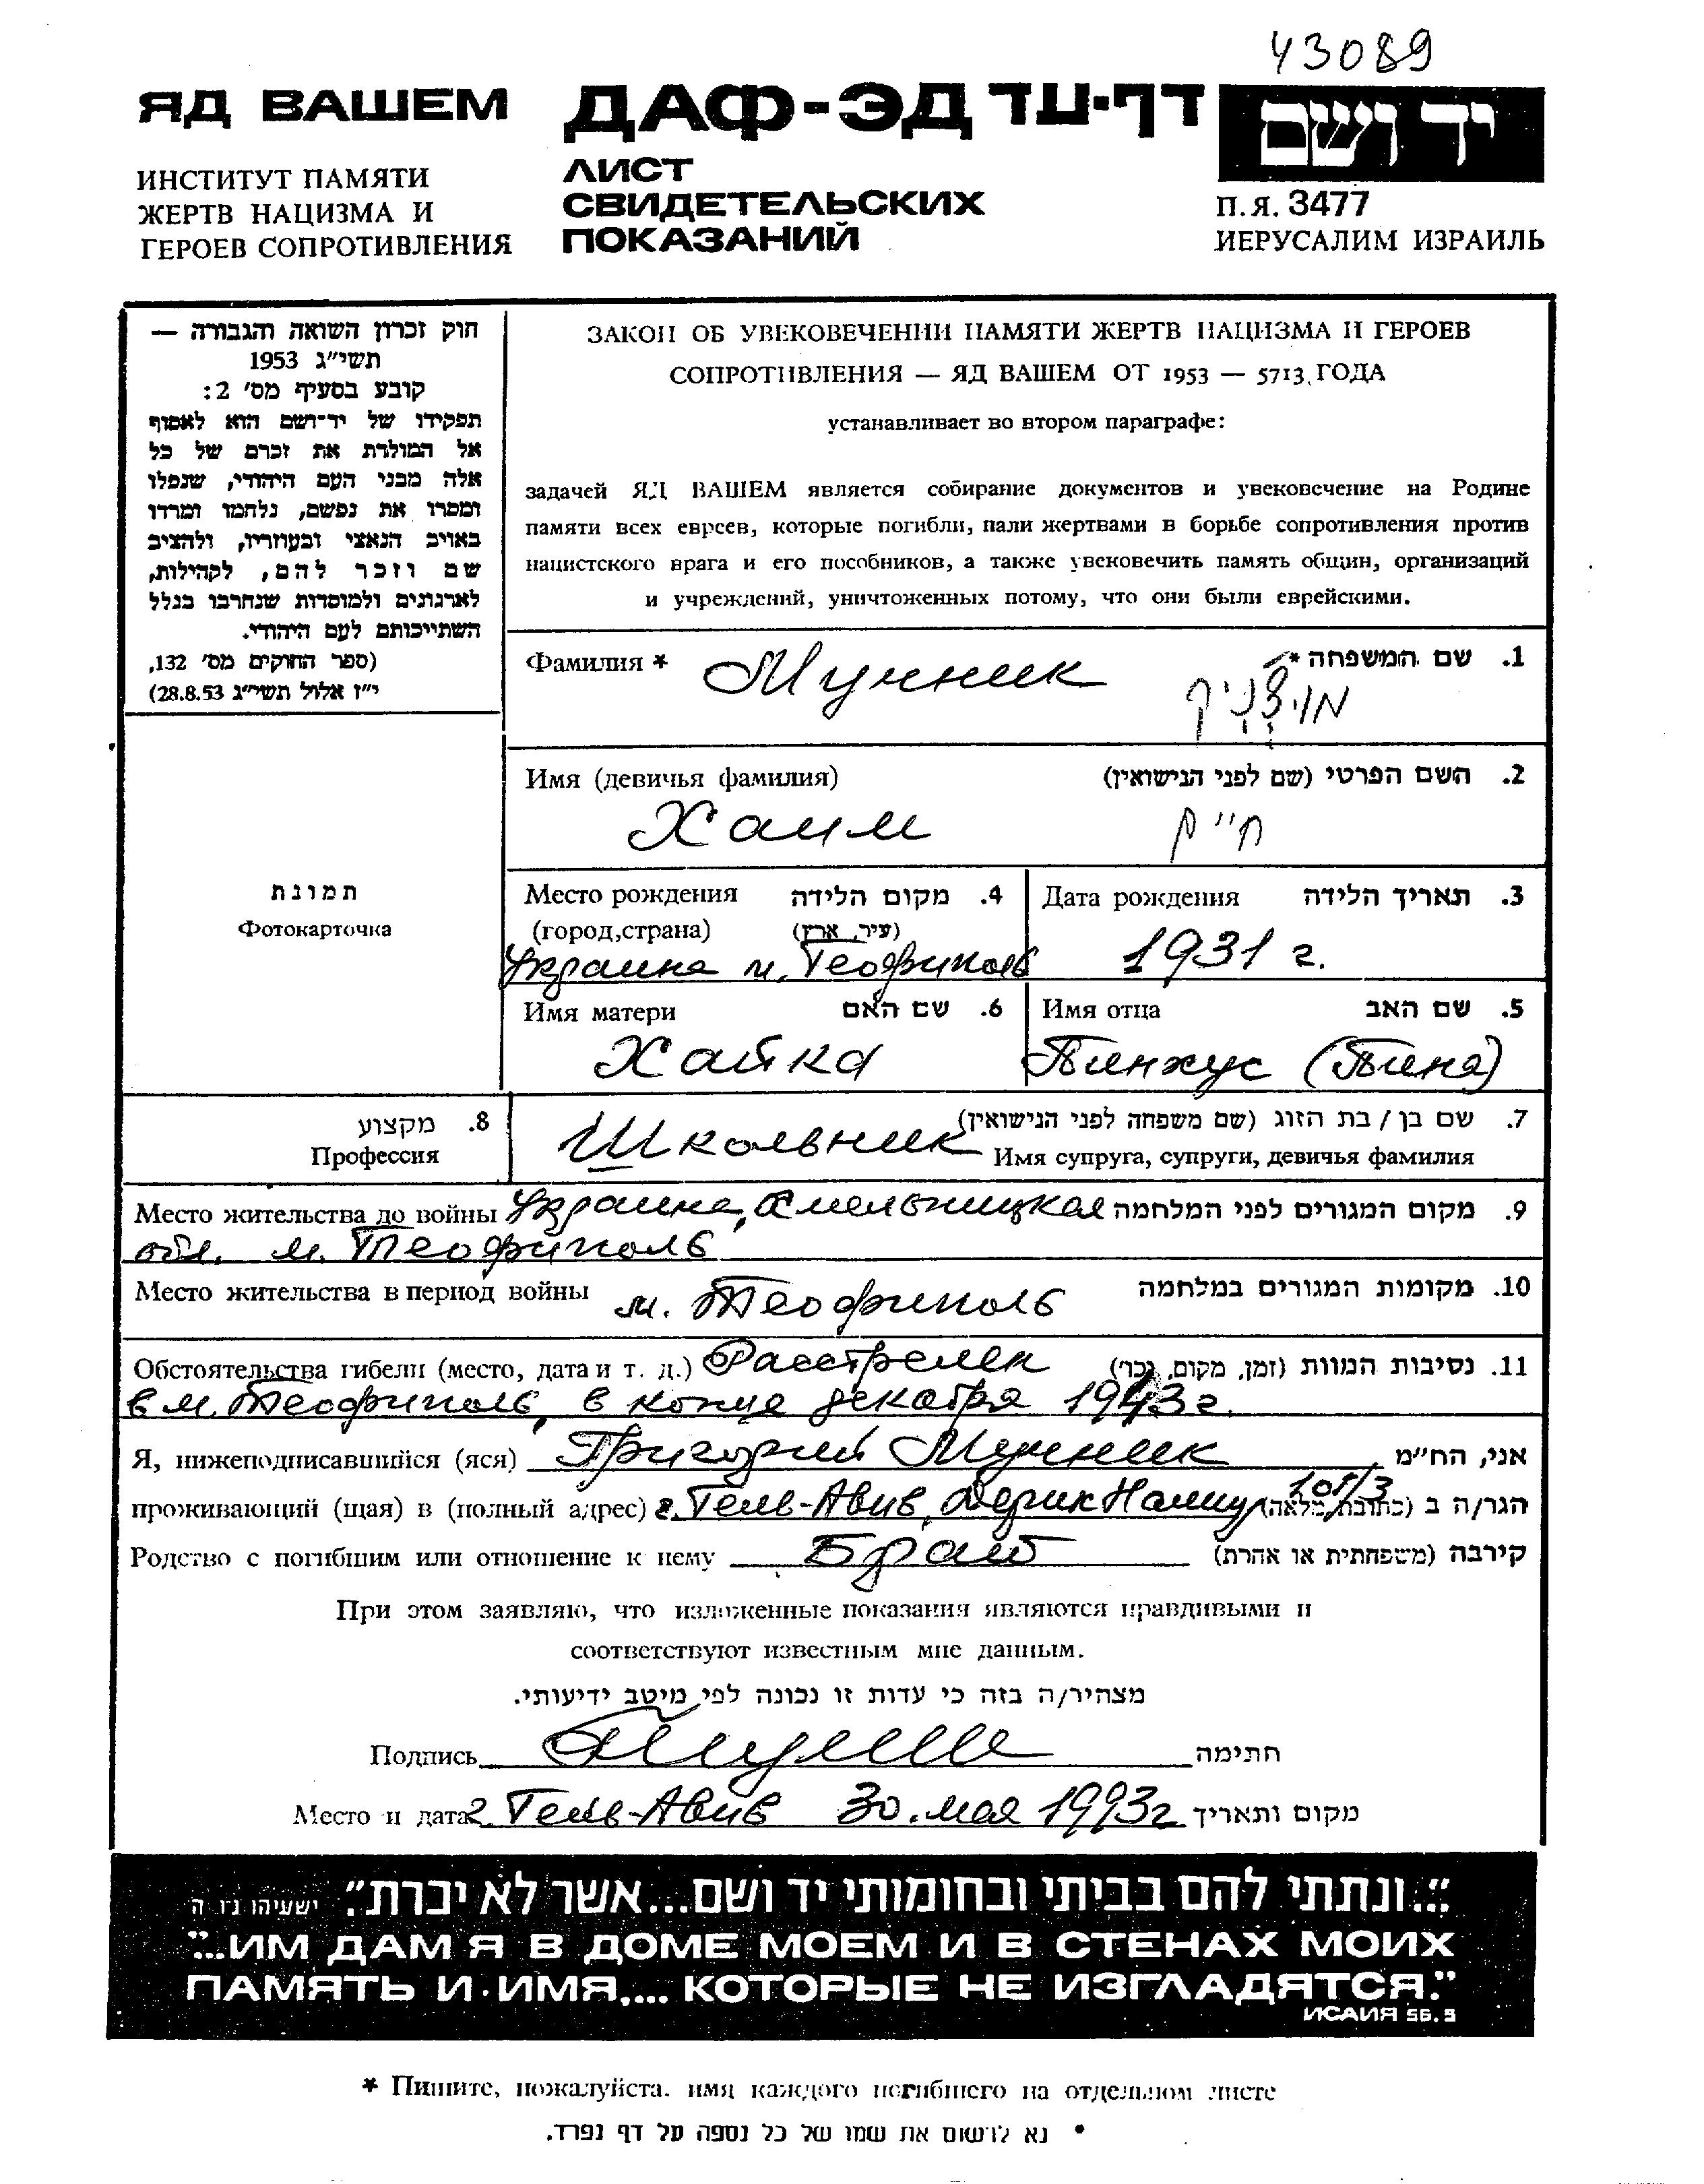 43089
ЯД ВАШЕМ ДАФ-ЭД דף-עד יד ושם
ИНСТИТУТ ПАМЯТИ
ЖЕРТВ НАЦИЗМА И
ГЕРОЕВ СОПРОТИВЛЕНИЯ
ЛИСТ
СВИДЕТЕЛЬСКИХ
ПОКАЗАНИЙ
П.Я. 3477
ИЕРУСАЛИМ ИЗРАИЛЬ
חוק זכרון השואה והגבורה —
תשי"ג 1953
קובע בסעיף מס' 2:
תפקידו של יד־ושם הוא לאסוף
אל המולדת את זכרם של כל
אלה מבני העם היהודי, שנפלו
ומסרו את נפשם, נלחמו ומרדו
באויב הנאצי ובעוזריו, ולהציב
שם וזכר להם, לקהילות,
לארגונים ולמוסדות שנחרבו בגלל
השתייכותם לעם היהודי.
(ספר החוקים מס' 132,
י"ז אלול תשי"ג 28.8.53)
ЗАКОН ОБ УВЕКОВЕЧЕНИИ ПАМЯТИ ЖЕРТВ НАЦИЗМА И ГЕРОЕВ
СОПРОТИВЛЕНИЯ — ЯД ВАШЕМ ОТ 1953 — 5713 ГОДА
устанавливает во втором параграфе:
задачей ЯД ВАШЕМ является собирание документов и увековечение на Родине
памяти всех евреев, которые погибли, пали жертвами в борьбе сопротивления против
нацистского врага и его пособников, а также увековечить память общин, организаций
и учреждений, уничтоженных потому, что они были еврейскими.
Фамилия * Мучник 1. שם המשפחה *
מוצ'ניק
Имя (девичья фамилия) 2. השם הפרטי (שם לפני הנישואין)
Хаим חיים
תמונת
Фотокарточка
Место рождения 4. מקום הלידה
(город,страна) (עיר, ארץ)
Украина м. Теофиполь
Дата рождения 3. תאריך הלידה
1931 г.
Имя матери 6. שם האם
Хайка
Имя отца 5. שם האב
Пинхус (Пиня)
8. מקצוע
Профессия
Школьник
7. שם בן / בת הזוג (שם משפחה לפני הנישואין)
Имя супруга, супруги, девичья фамилия
Место жительства до войны Украина, Хмельницкая 9. מקום המגורים לפני המלחמה
обл. м. Теофиполь
Место жительства в период войны м. Теофиполь 10. מקומות המגורים במלחמה
Обстоятельства гибели (место, дата и т. д.) Расстрелян 11. נסיבות המוות (זמן, מקום, וכו')
в м. Теофиполь, в конце декабря 1943 г.
Я, нижеподписавшийся (яся) Григорий Мучник אני, הח"מ
проживающий (щая) в (полный адрес) г. Тель-Авив, Дерик 101/3 הגר/ה ב (כתובת מלאה)
Родство с погибшим или отношение к нему Брат קירבה (משפחתית או אחרת)
При этом заявляю, что изложенные показания являются правдивыми и
соответствуют известным мне данным.
מצהיר/ה בזה כי עדות זו נכונה לפי מיטב ידיעותי.
Подпись חתימה
Место и дата г. Тель-Авив 30. мая 1993г מקום ותאריך
"...ונתתי להם בביתי ובחומותי יד ושם...אשר לא יכרת." ישעיהו נ"ו ה
"...ИМ ДАМ Я В ДОМЕ МОЕМ И В СТЕНАХ МОИХ
ПАМЯТЬ И ИМЯ.... КОТОРЫЕ НЕ ИЗГЛАДЯТСЯ."
ИСАИЯ 56.5
* Пишите, пожалуйста. имя каждого погибшего на отдельном листе
* נא לרשום את שמו של כל נספה על דף נפרד.